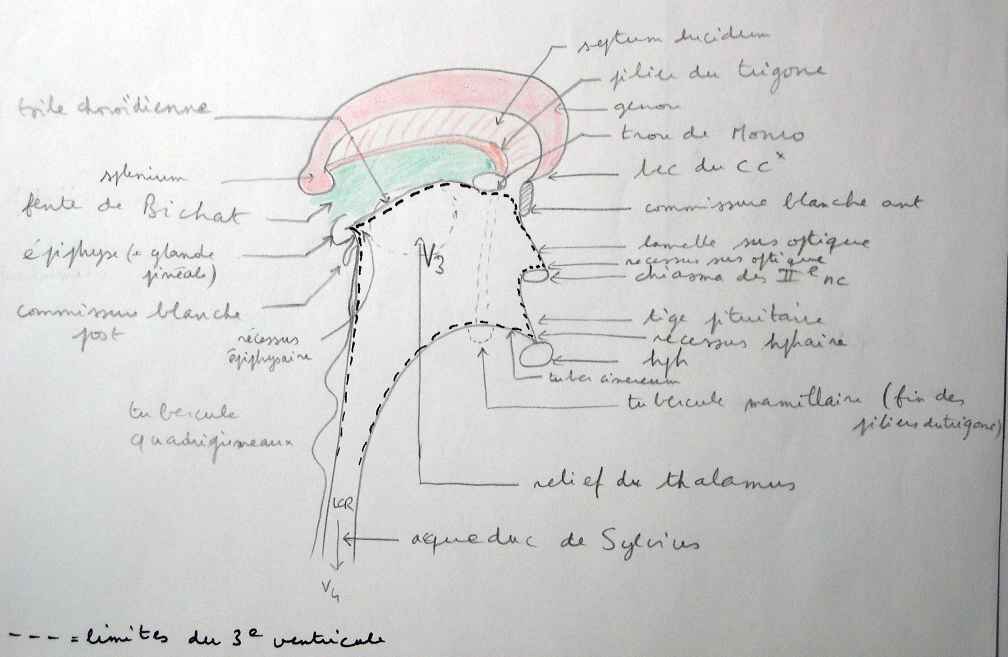 septum lucidum
pilier du trigone
toile choroïdienne
genou
trou de Monro
splenium
bec du CC^x
fente de Bichat
commissure blanche ant
épiphyse (= glande
pinéale)
lamelle sus optique
récessus sus optique
chiasma des II^e nc
V3
commissure blanche
post
tige pituitaire
récessus hphaire
récessus
épiphysaire
hph
tuber cinereum
tubercule mamillaire (fin des
piliers du trigone)
tubercule
quadrigumeaux
relief du thalamus
LCR
aqueduc de Sylvius
V4
--- = limites du 3^e ventricule